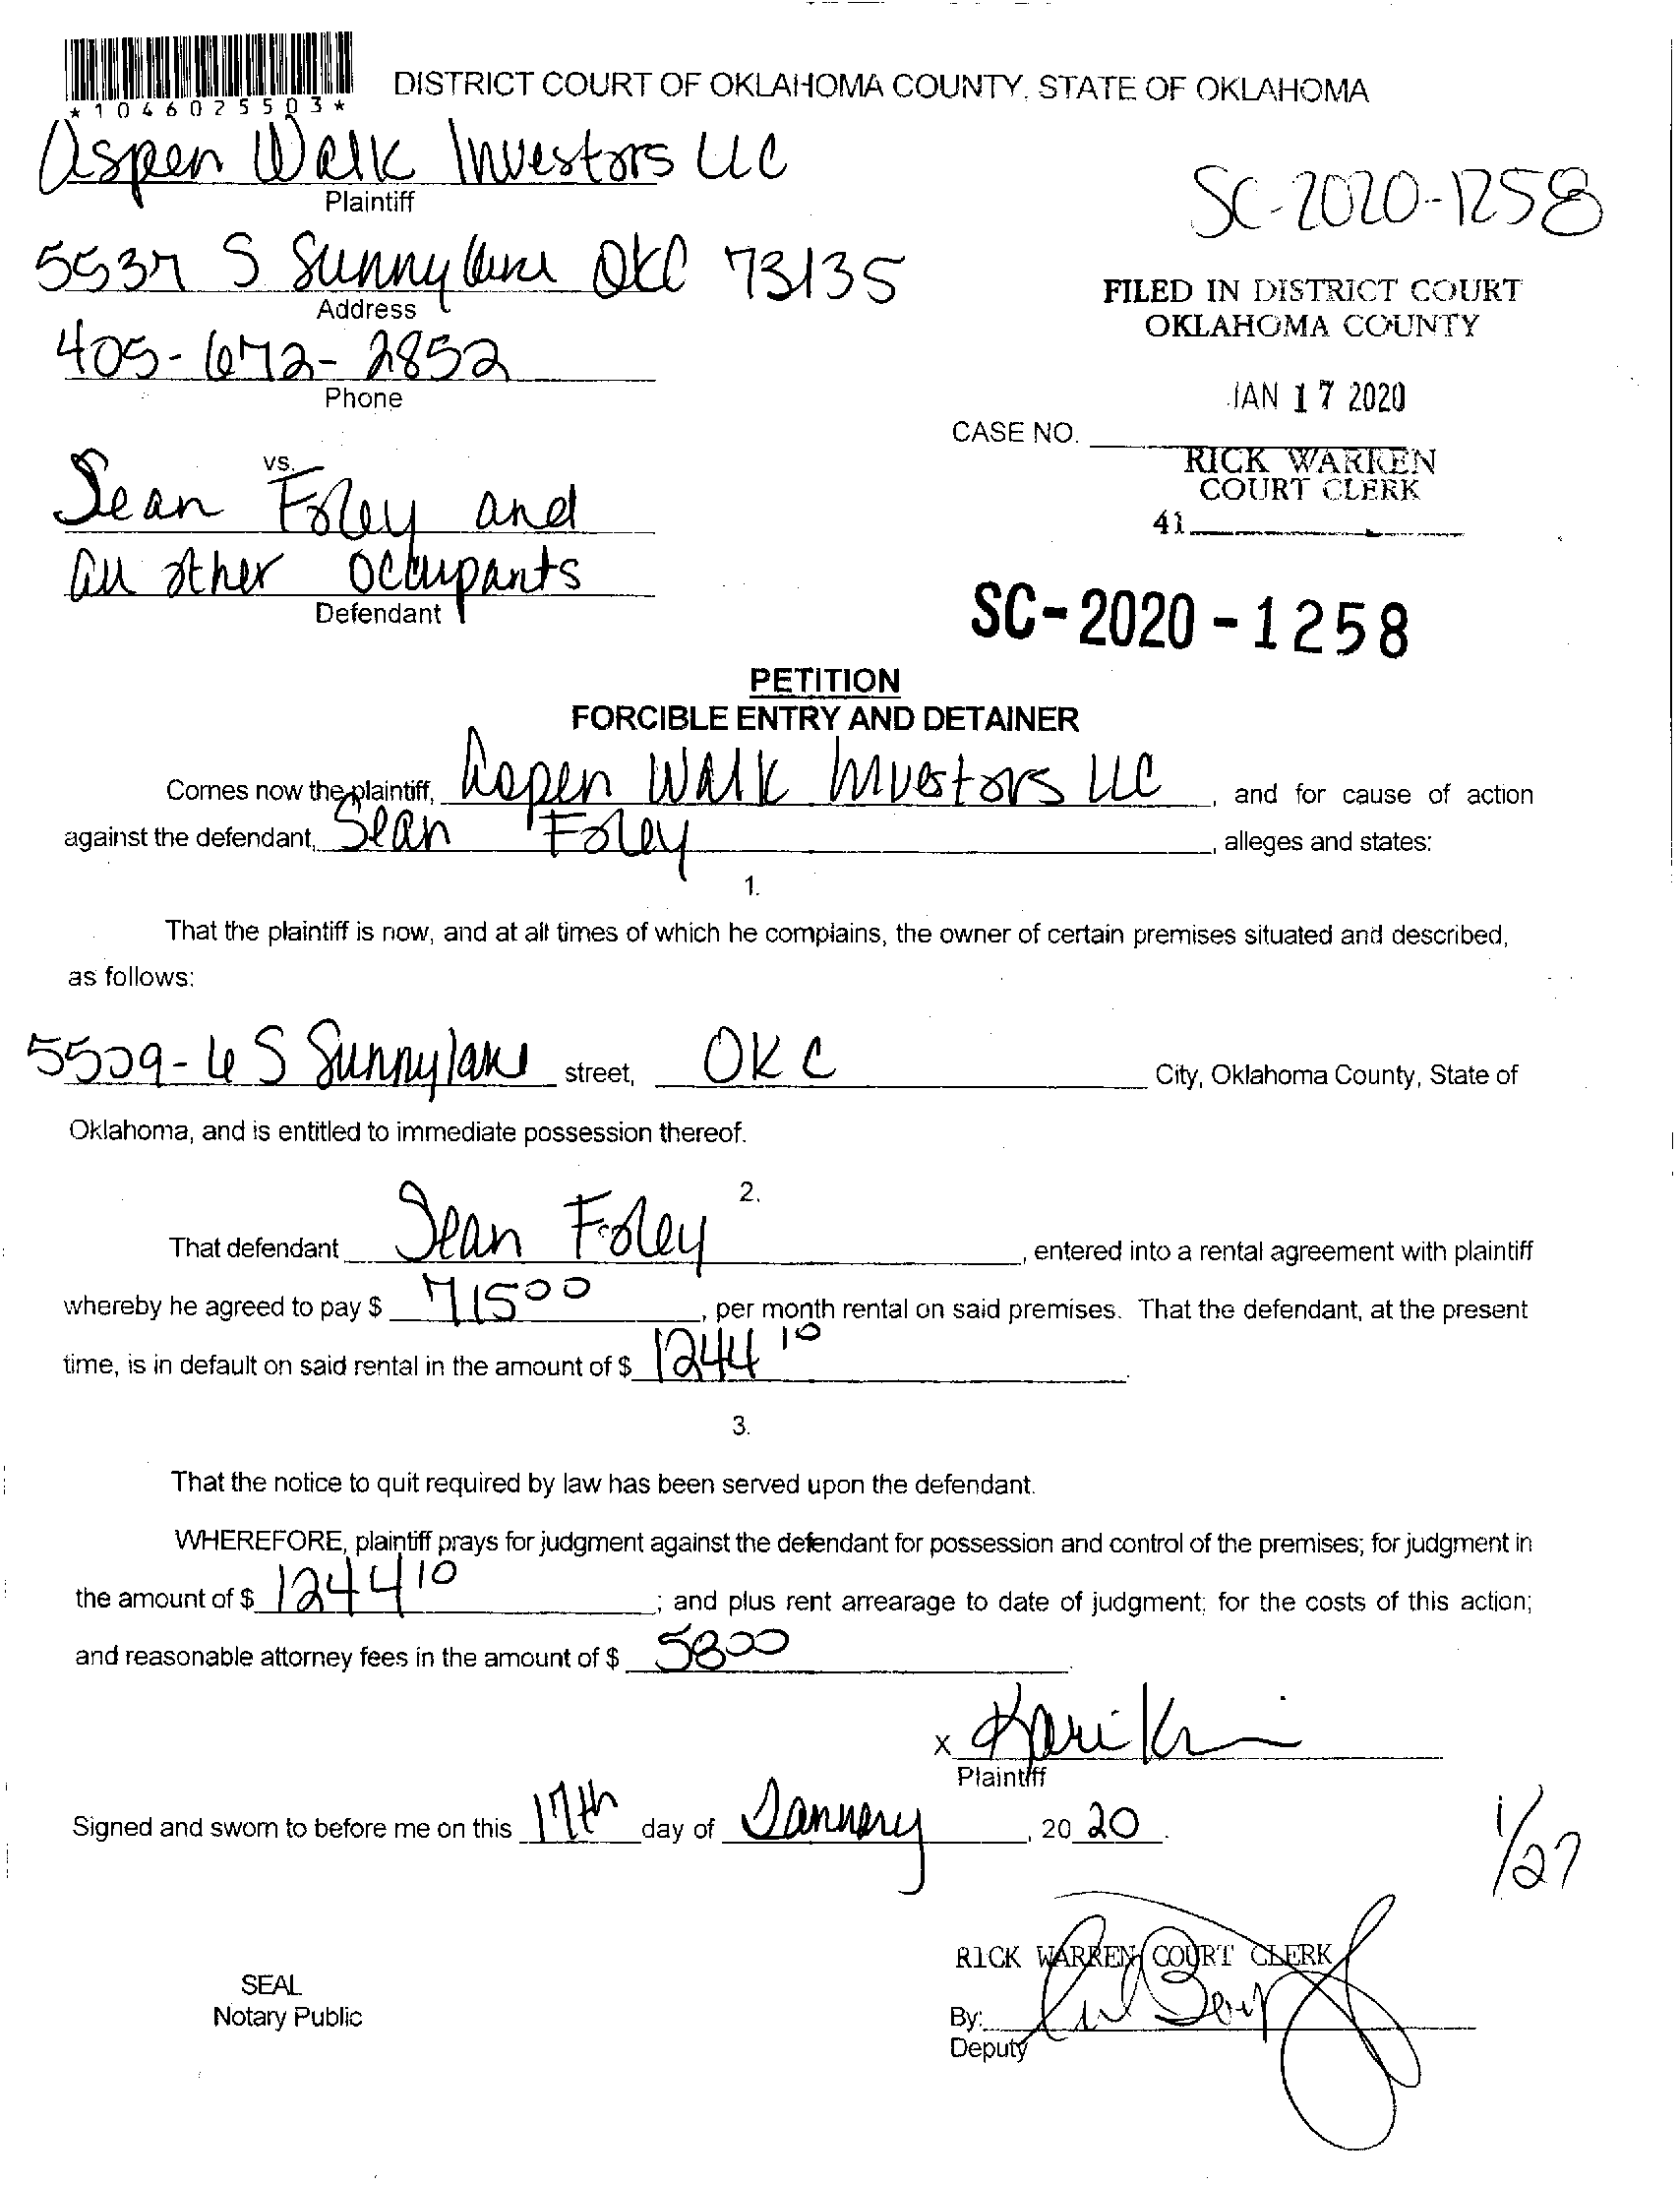 *1046025503*
DISTRICT COURT OF OKLAHOMA COUNTY, STATE OF OKLAHOMA
Aspen Walk Investors LLC
Plaintiff
SC-2020-1258
5537 S Sunnylane OKC 73135
Address
FILED IN DISTRICT COURT
OKLAHOMA COUNTY
405-672-2852
Phone
JAN 17 2020
CASE NO.
RICK WARREN
COURT CLERK
41
vs.
Sean Foley and
all other occupants
Defendant
SC-2020-1258
PETITION
FORCIBLE ENTRY AND DETAINER
Comes now the plaintiff, Aspen Walk Investors LLC, and for cause of action
against the defendant, Sean Foley, alleges and states:
1.
That the plaintiff is now, and at all times of which he complains, the owner of certain premises situated and described,
as follows:
S Sunnylane street, OKC City, Oklahoma County, State of
Oklahoma, and is entitled to immediate possession thereof.
2.
That defendant Sean Foley, entered into a rental agreement with plaintiff
whereby he agreed to pay $ 715 00, per month rental on said premises. That the defendant, at the present
time, is in default on said rental in the amount of $ 1244 10.
3.
That the notice to quit required by law has been served upon the defendant.
WHEREFORE, plaintiff prays for judgment against the defendant for possession and control of the premises; for judgment in
the amount of $ 1244 10; and plus rent arrearage to date of judgment; for the costs of this action;
and reasonable attorney fees in the amount of $ 58 00
x Kari
Plaintiff
Signed and sworn to before me on this 17th day of January, 20 20.
1/27
RICK WARREN COURT CLERK
SEAL
Notary Public
By:
Deputy